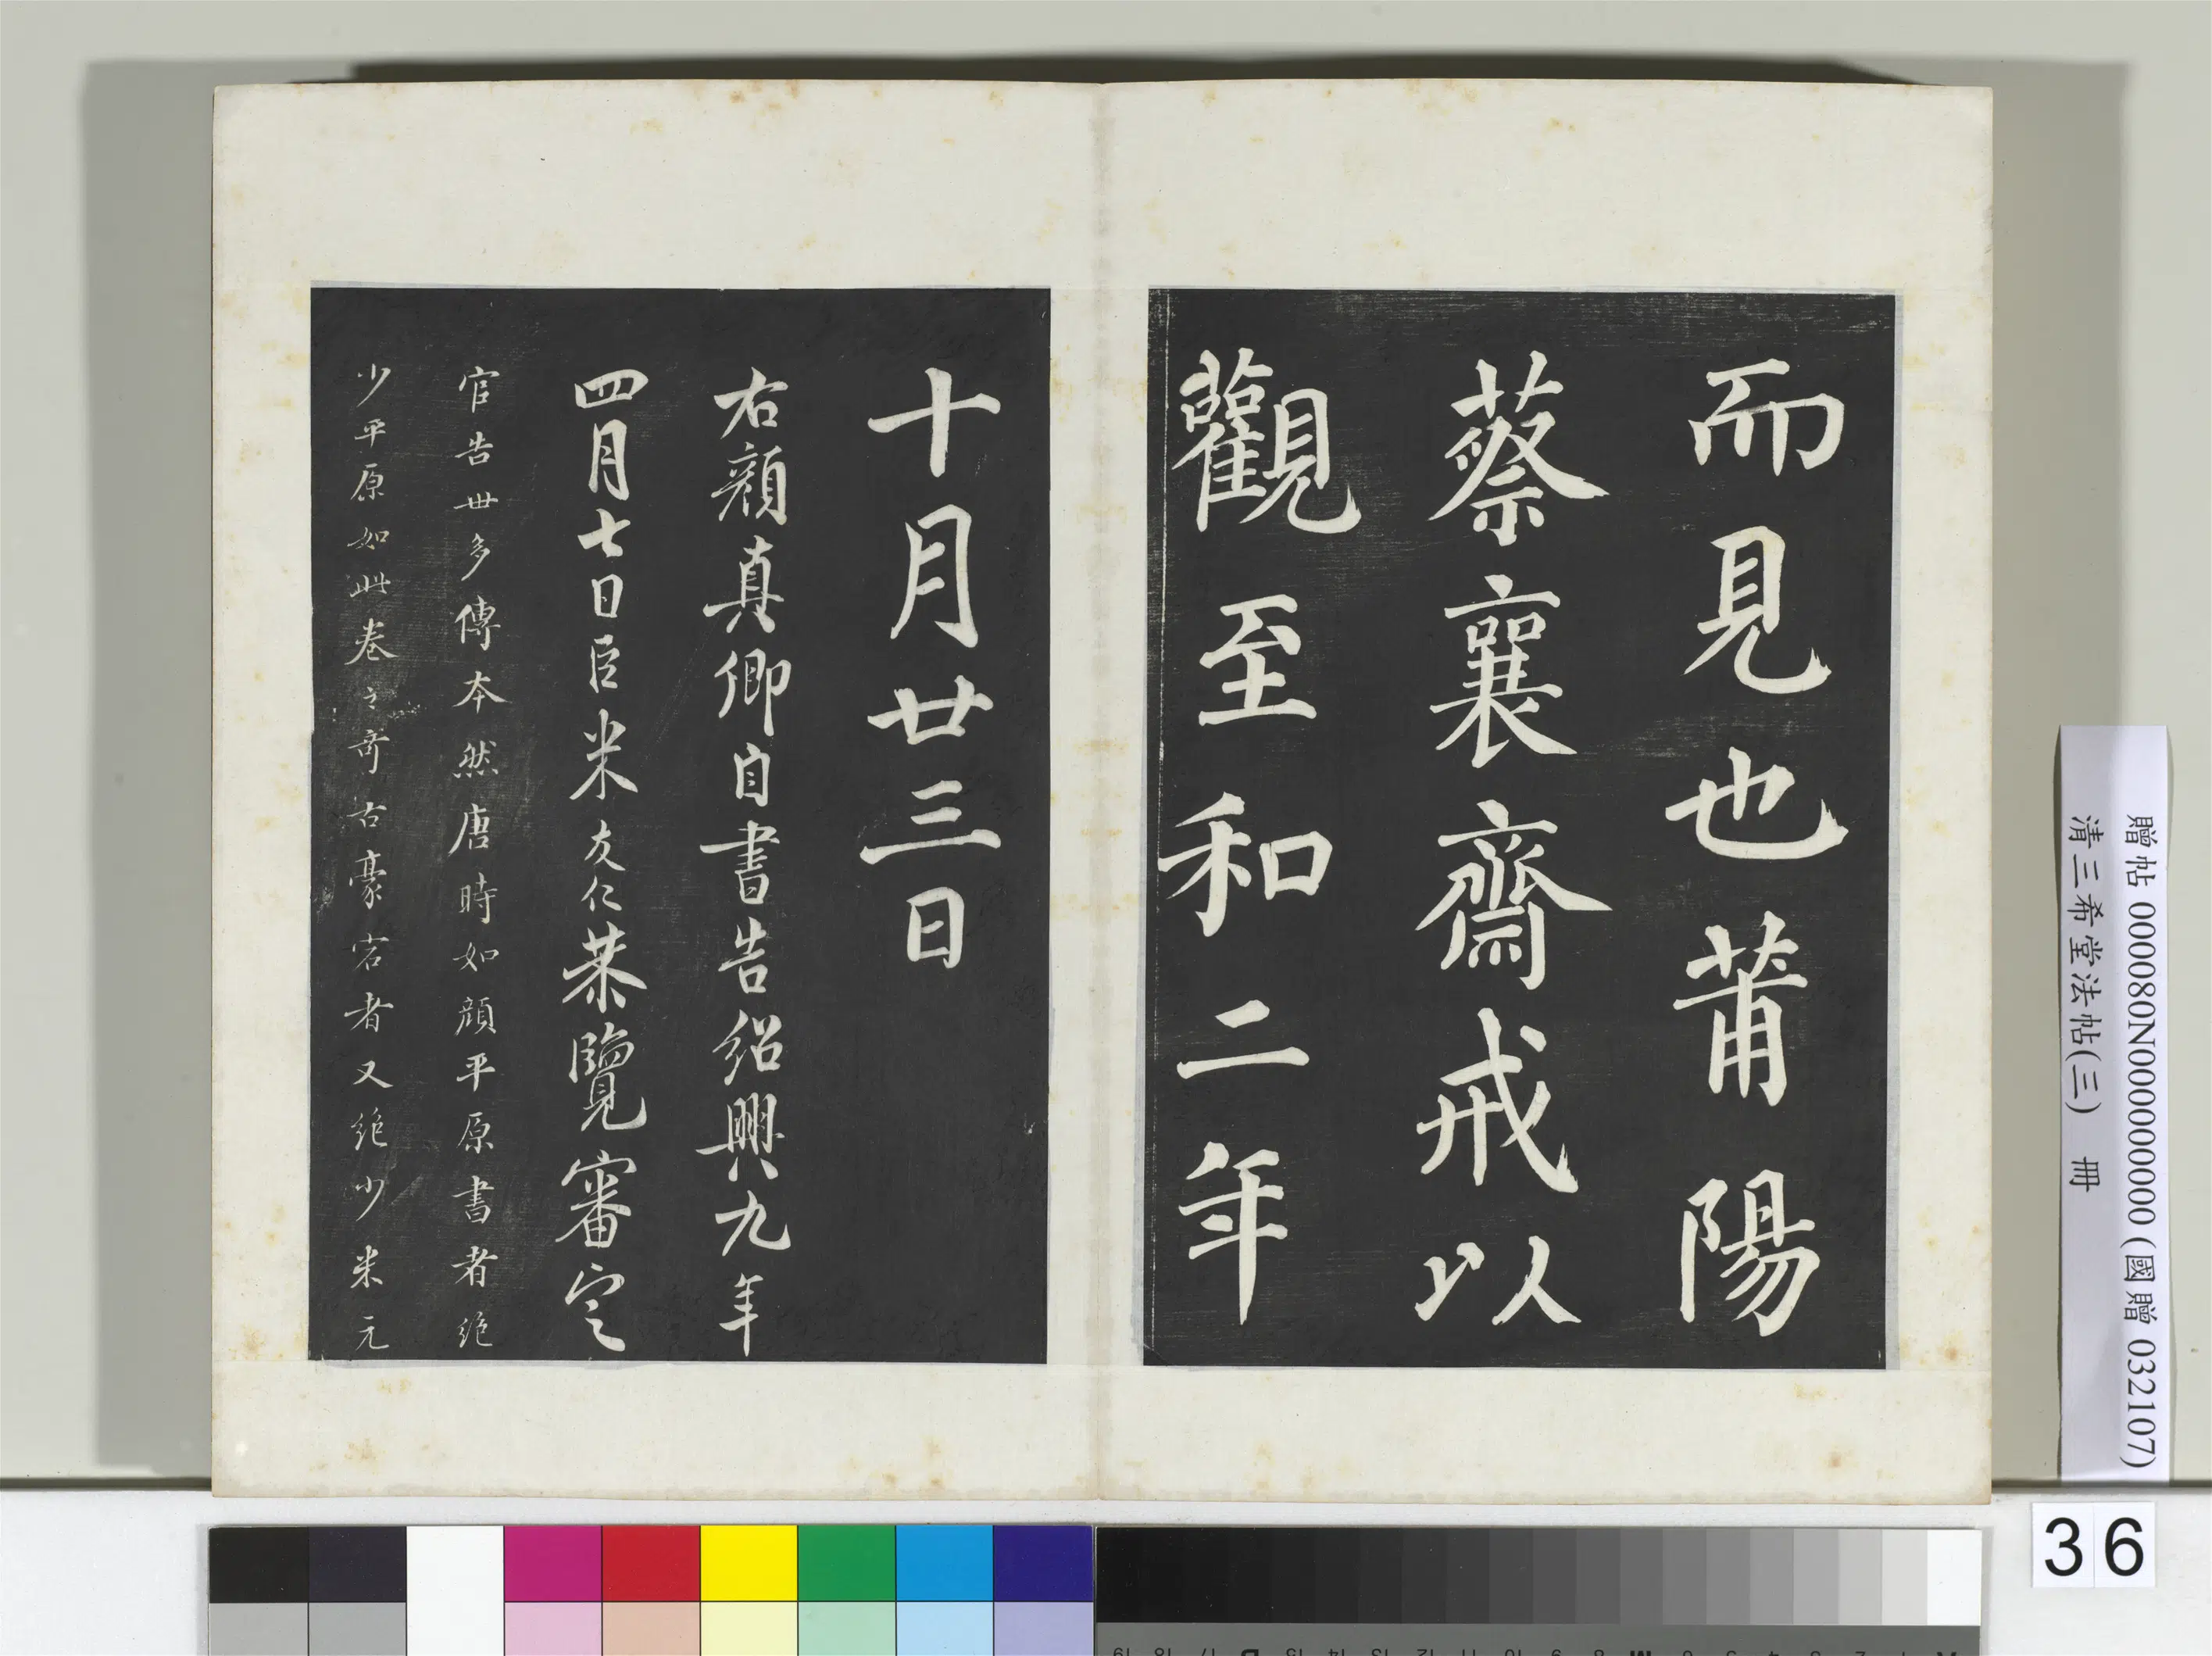 而見也莆陽
蔡襄齋戒以
觀至和二年
十月廿三日
右顏真卿自書告紹興九年
四月七日臣米友仁恭覽審定
官告世多傳本然唐時如顏平原書者絶
少平原如此卷之奇古豪宕者又絶少米元
贈帖 000080N000000000 (國贈 032107)
清三希堂法帖(三) 冊
36